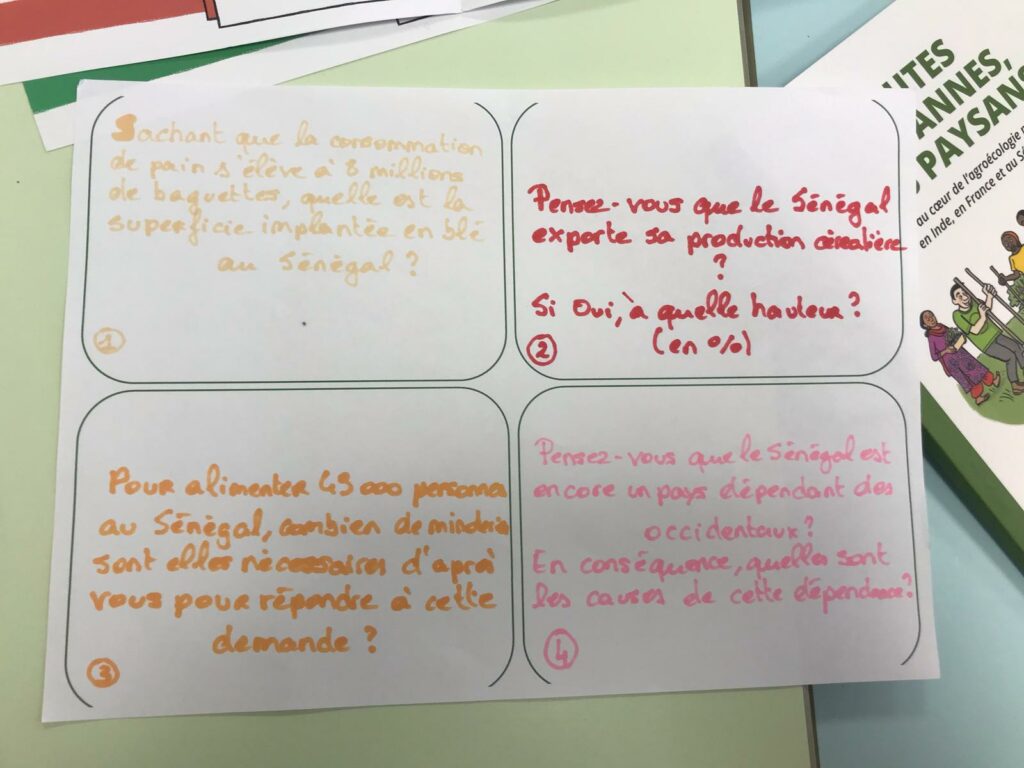 Sachant que la consommation
de pain s'élève à 8 millions
de baguettes, quelle est la
superficie implantée en blé
au Sénégal ?
1
Pensez-vous que le Sénégal
exporte sa production céréalière
?
Si Oui, à quelle hauteur?
(en %)
2
Pour alimenter 45 000
au Sénégal, combien de
sont elles nécessaires d'après
vous pour répondre à cette
demande ?
3
Pensez-vous que le Sénégal est
encore un pays dépendant des
occidentaux ?
En conséquence, quelles sont
les causes de cette dépendance?
4
ANNES,
PAYSAN
au cœur de l'agroécologie
en Inde, en France et au